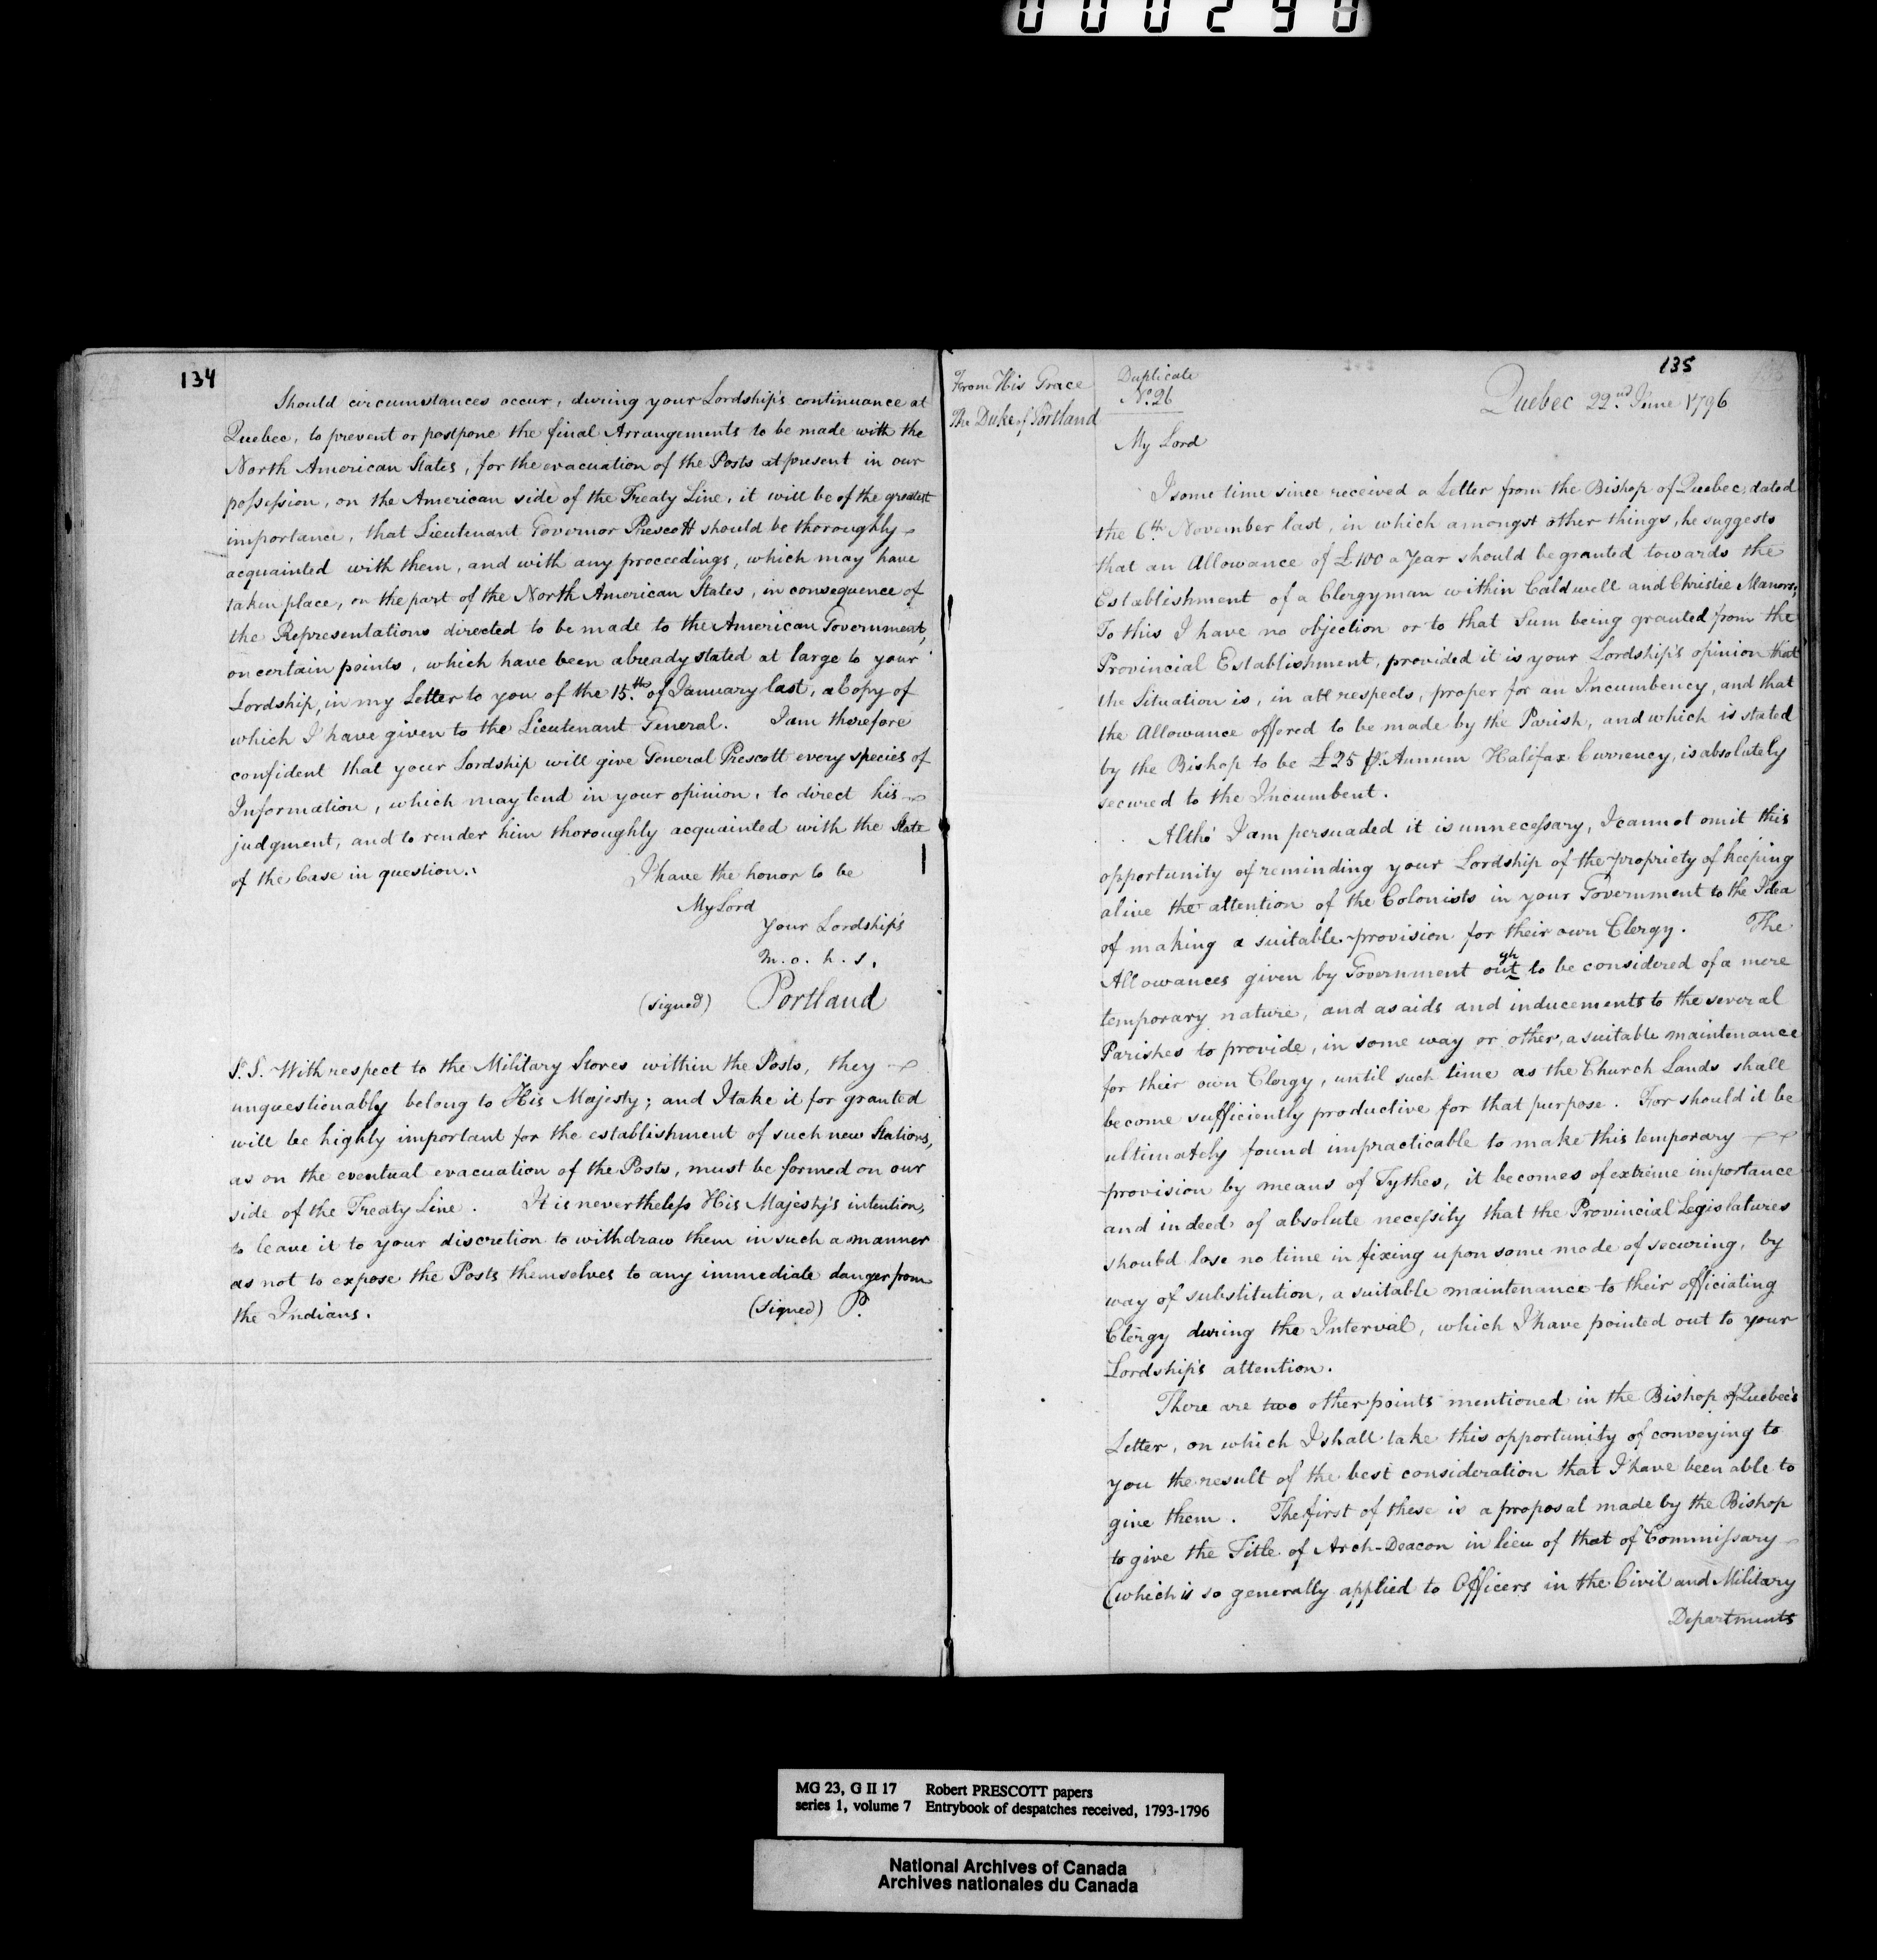 000298
134
Should circumstances occur, during your Lordship's continuance at
Quebec, to prevent or postpone the final Arrangements to be made with the
North American States, for the evacuation of the Posts at present in our
possession, on the American side of the Treaty Line, it will be of the greatest
importance, that Lieutenant Governor Prescott should be thoroughly
acquainted with them, and with any proceedings, which may have
taken place, on the part of the North American States, in consequence of
the Representations directed to be made to the American Government,
on certain points, which have been already stated at large to your
Lordship, in my Letter to you of the 15.th of January last, a Copy of
which I have given to the Lieutenant General. I am therefore
confident that your Lordship will give General Prescott every species of
Information, which may tend in your opinion, to direct his
judgment, and to render him thoroughly acquainted with the State
of the Case in question.
I have the honor to be
My Lord
Your Lordship's
m. o. h. s.
(signed) Portland
P.S. With respect to the Military Stores within the Posts, they
unquestionably belong to His Majesty; and I take it for granted
will be highly important for the establishment of such new Stations,
as on the eventual evacuation of the Posts, must be formed on our
side of the Treaty Line. It is nevertheless His Majesty's intention,
to leave it to your discretion to withdraw them in such a manner
as not to expose the Posts themselves to any immediate danger from
the Indians. (signed) P.
135
From His Grace
The Duke of Portland
Duplicate
No. 26
Quebec 22.nd June 1796
My Lord
I some time since received a Letter from the Bishop of Quebec, dated
the 6.th November last, in which amongst other things, he suggests
that an Allowance of £100 a Year should be granted towards the
Establishment of a Clergyman within Caldwell and Christie Manors;
To this I have no objection or to that Sum being granted from the
Provincial Establishment, provided it is your Lordship's opinion that
the Situation is, in all respects, proper for an Incumbency, and that
the Allowance offered to be made by the Parish, and which is stated
by the Bishop to be £25 Pr. Annum Halifax Currency, is absolutely
secured to the Incumbent.
Altho' I am persuaded it is unnecessary, I cannot omit this
opportunity of reminding your Lordship of the propriety of keeping
alive the attention of the Colonists in your Government to the Idea
of making a suitable provision for their own Clergy. The
Allowances given by Government ought to be considered of a mere
temporary nature, and as aids and inducements to the several
Parishes to provide, in some way or other, a suitable maintenance
for their own Clergy, until such time as the Church Lands shall
become sufficiently productive for that purpose. For should it be
ultimately found impracticable to make this temporary
provision by means of Tythes, it becomes of extreme importance
and indeed of absolute necessity that the Provincial Legislatures
should lose no time in fixing upon some mode of securing, by
way of substitution, a suitable maintenance to their officiating
Clergy during the Interval, which I have pointed out to your
Lordship's attention.
There are two other points mentioned in the Bishop of Quebec's
Letter, on which I shall take this opportunity of conveying to
you the result of the best consideration that I have been able to
give them. The first of these is a proposal made by the Bishop
to give the Title of Arch-Deacon in lieu of that of Commissary
(which is so generally applied to Officers in the Civil and Military
Departments
MG 23, G II 17 Robert PRESCOTT papers
series 1, volume 7 Entrybook of despatches received, 1793-1796
National Archives of Canada
Archives nationales du Canada